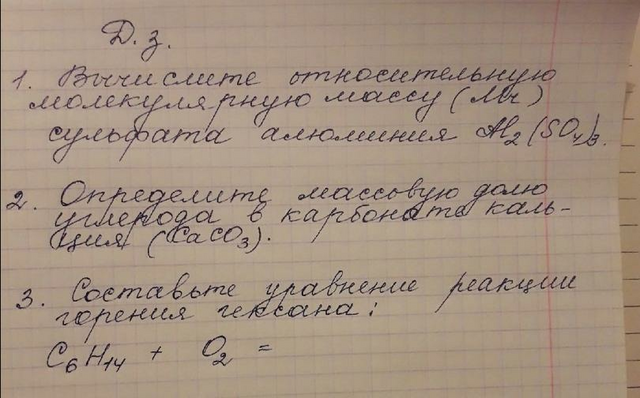 Д.з.
1. Вычислите относительную
молекулярную массу (Mr)
сульфата алюминия Al₂(SO₄)₃.
2. Определите массовую долю
углерода в карбонате каль-
ция (CaCO₃).
3. Составьте уравнение реакции
горения гексана:
C₆H₁₄ + O₂ =